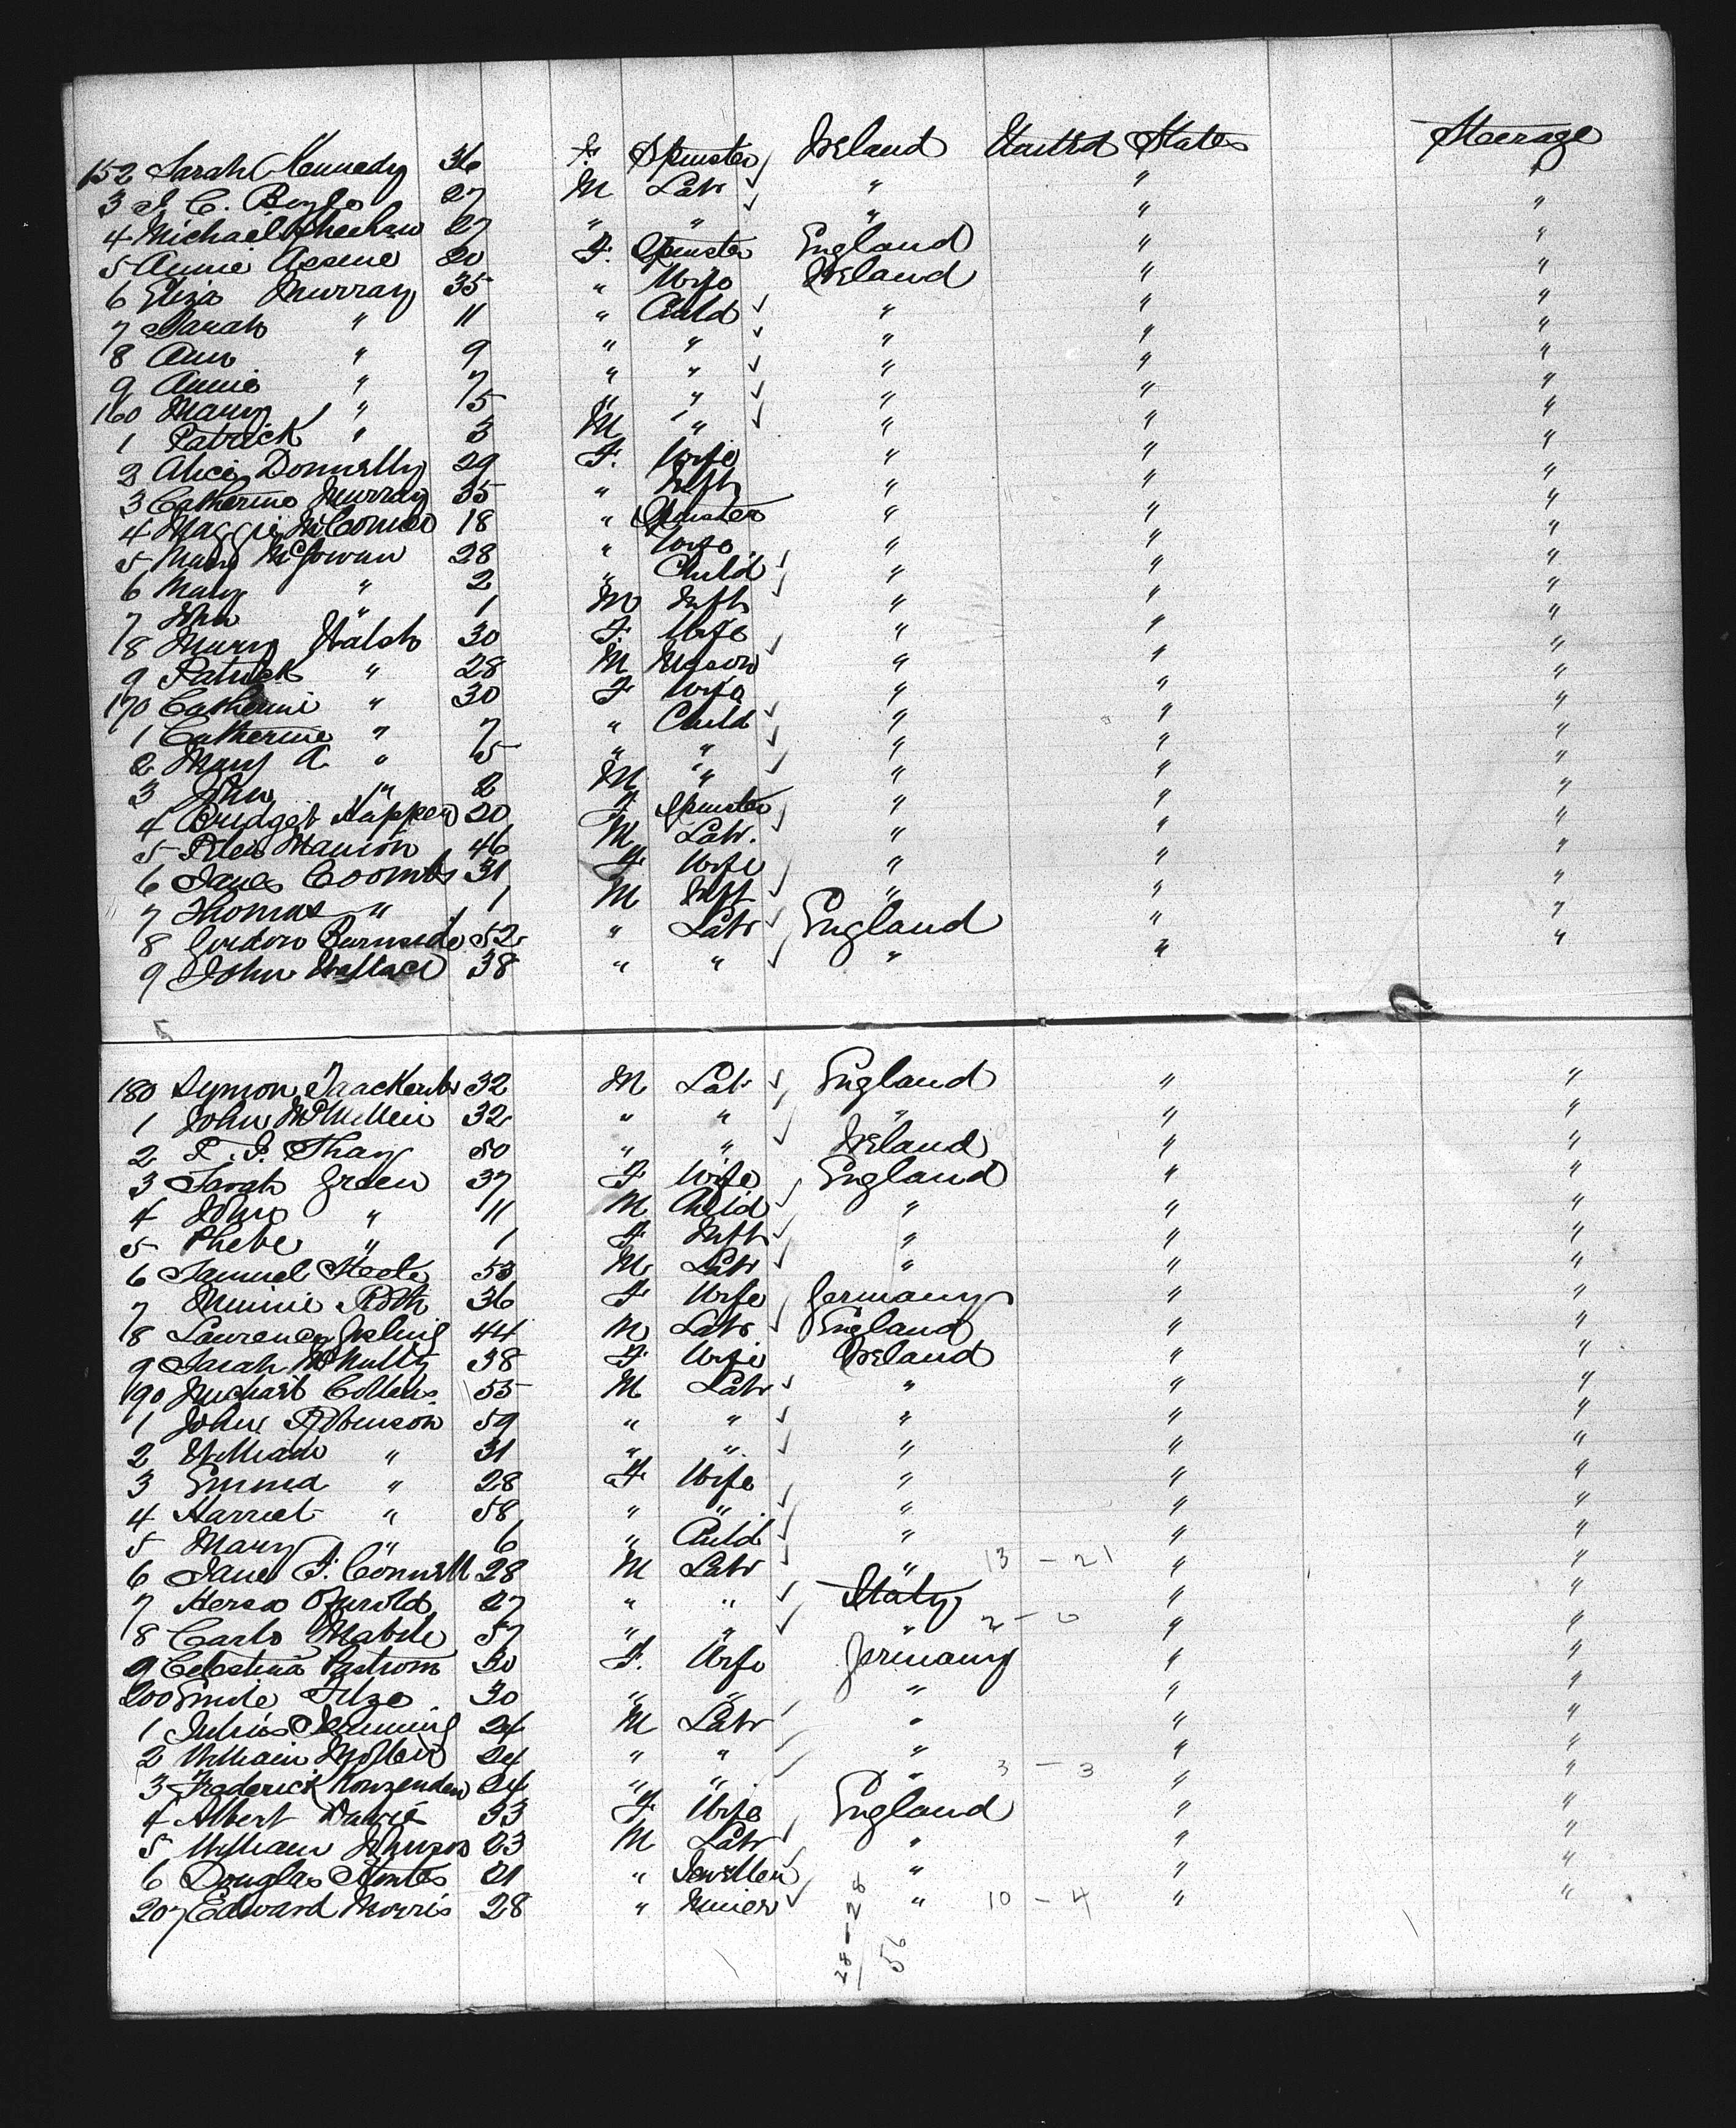 152 Sarah Kennedy 36 F. Spinster Ireland United States Steerage
3 J. C. Boyle 27 M Labr " " "
4 Michael Sheehan 27 " " " " "
5 Annie 20 F. Spinster England " "
6 Eliza Murray 35 " Wife Ireland " "
7 Sarah " 11 " Child " " "
8 Ann " 9 " " " " "
9 Annie " 7 " " " " "
160 Mary " 5 " " " " "
1 Patrick " 3 M " " " "
2 Alice Donnelly 29 F. Wife " " "
3 Catherine Murray 35 " " " "
4 Maggie 18 " Spinster " " "
5 Mary McGowan 28 " Wife " " "
6 Mary " 2 " Child " " "
7 John " 1 M Inft " " "
8 Mary Walsh 30 F. Wife " " "
9 Patrick " 28 M Mason " " "
170 Catherine " 30 F Wife " " "
1 Catherine " 7 " Child " " "
2 Mary A " 5 " " " " "
3 John " 2 M " " " "
4 Bridget 20 F Spinster " " "
5 Peter Manion 46 M Labr. " " "
6 Coombs 31 F Wife " " "
7 Thomas " 1 M Inft " " "
8 Gordon Burnside 52 " Labr England " "
9 John Wallace 38 " " " " "
180 Symon 32 M Labr England " "
1 John 32 " " " " "
2 50 " " Ireland " "
3 Sarah Green 37 F Wife England " "
4 John " 11 M Child " " "
5 Phebe " 1 F Inft " " "
6 Samuel Steele 53 M Labr " " "
7 Minnie Roth 36 F Wife Germany " "
8 Lawrence 44 M Labr England " "
9 Sarah McNulty 38 F Wife Ireland " "
190 Michael Collins 55 M Labr " " "
1 John Robinson 59 " " " " "
2 William " 31 " " " " "
3 Emma " 28 F Wife " " "
4 Harriet " 58 " " " " "
5 Mary " 6 " Child " " "
6 28 M Labr " 13 - 21 " "
7 27 " " Italy " "
8 Carlo 57 " " " 2 - 0 " "
9 Celestina 30 F. Wife Germany " "
200 30 " " " " "
1 Julius 24 M Labr " " "
2 William 24 " " " " "
3 Frederick 24 " " " 3 - 3 " "
4 Albert 33 F Wife England " "
5 William Johnson 23 M Labr " " "
6 Douglas 21 " " " "
207 Edward Morris 28 " Miner " 10 - 4 " "
28 - 28
56